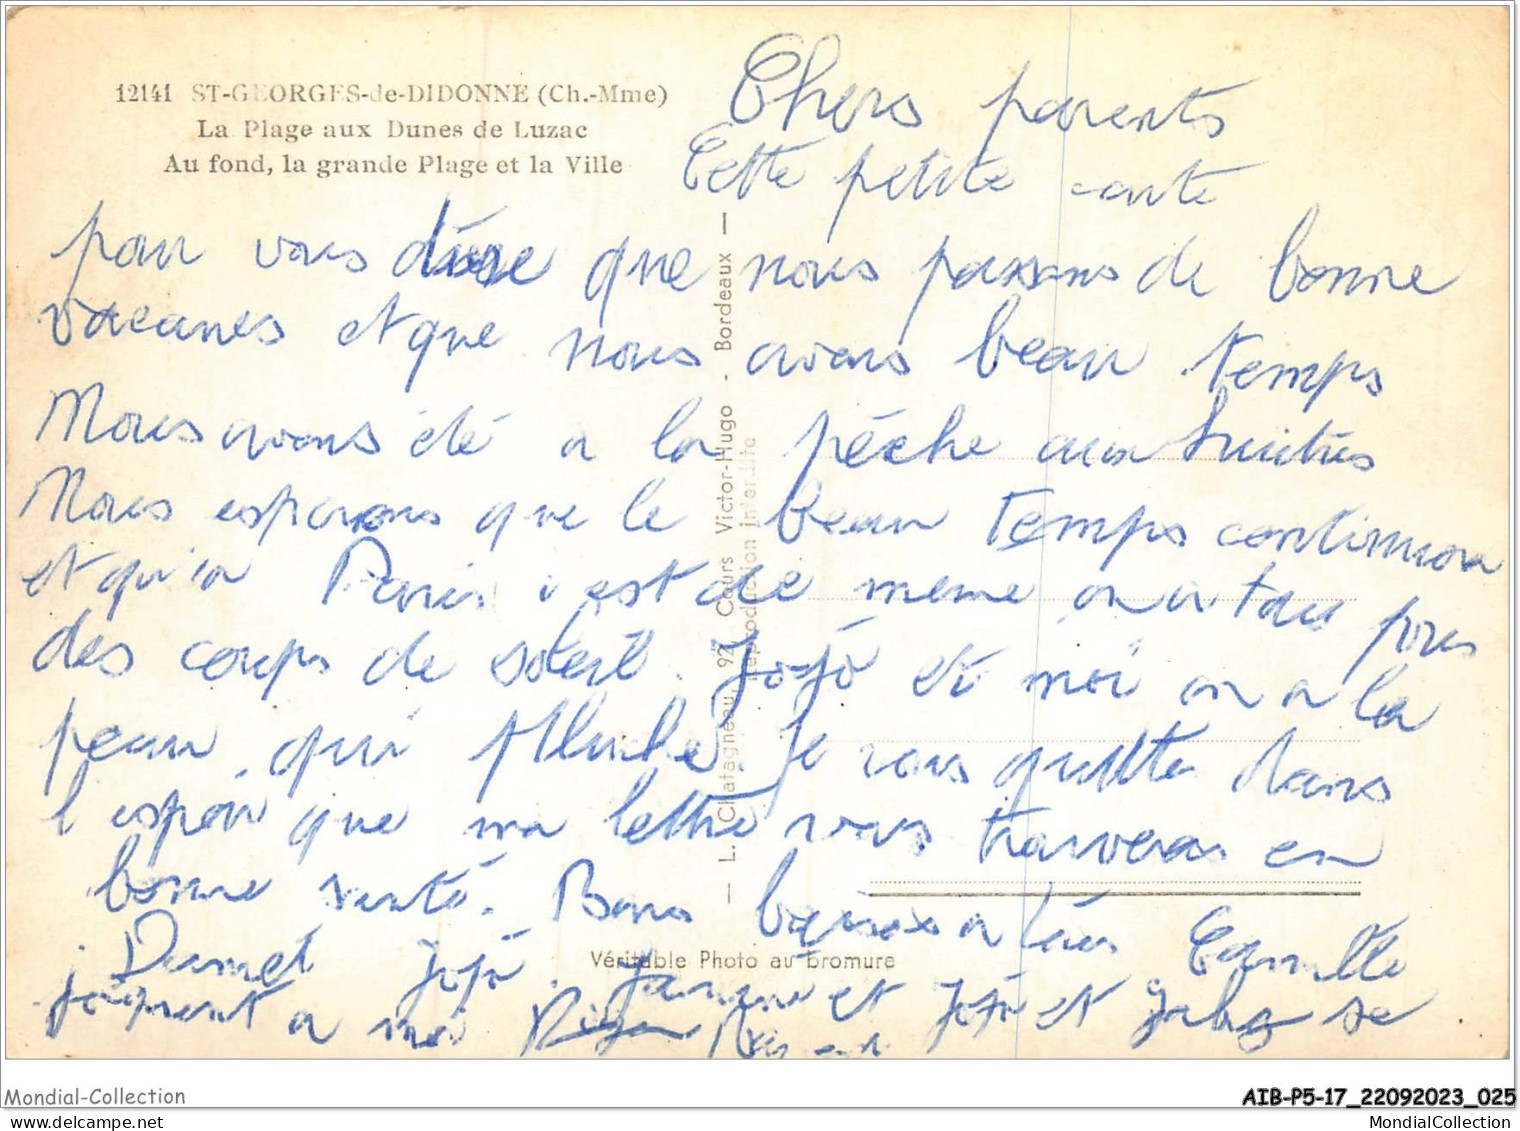 12141 ST-GEORGES-de-DIDONNE (Ch.-Mme)
La Plage aux Dunes de Luzac
Au fond, la grande Plage et la Ville
Chers parents
Cette petite carte
pour vous dire que nous passons de bonne
vacanes et que nous avons beau temps
Nous avons été a la pêche aux huitres
Nous esperons que le beau temps continuera
et qu'a Paris c'est de meme on a tous pris
des coups de soleil. Jojo et moi on a la
peau qui pluche. Je vous quitte dans
l'espoir que ma lettre vous trouveras en
bonne santé. Bons baisers a tous Camille
Jojo Janine et Jojo et se
joignent a moi
— L. Chatagneau, 92, Cours Victor-Hugo - Bordeaux —
Reproduction interdite
Véritable Photo au bromure
Mondial-Collection
AIB-P5-17_22092023_025
www.delcampe.net
MondialCollection